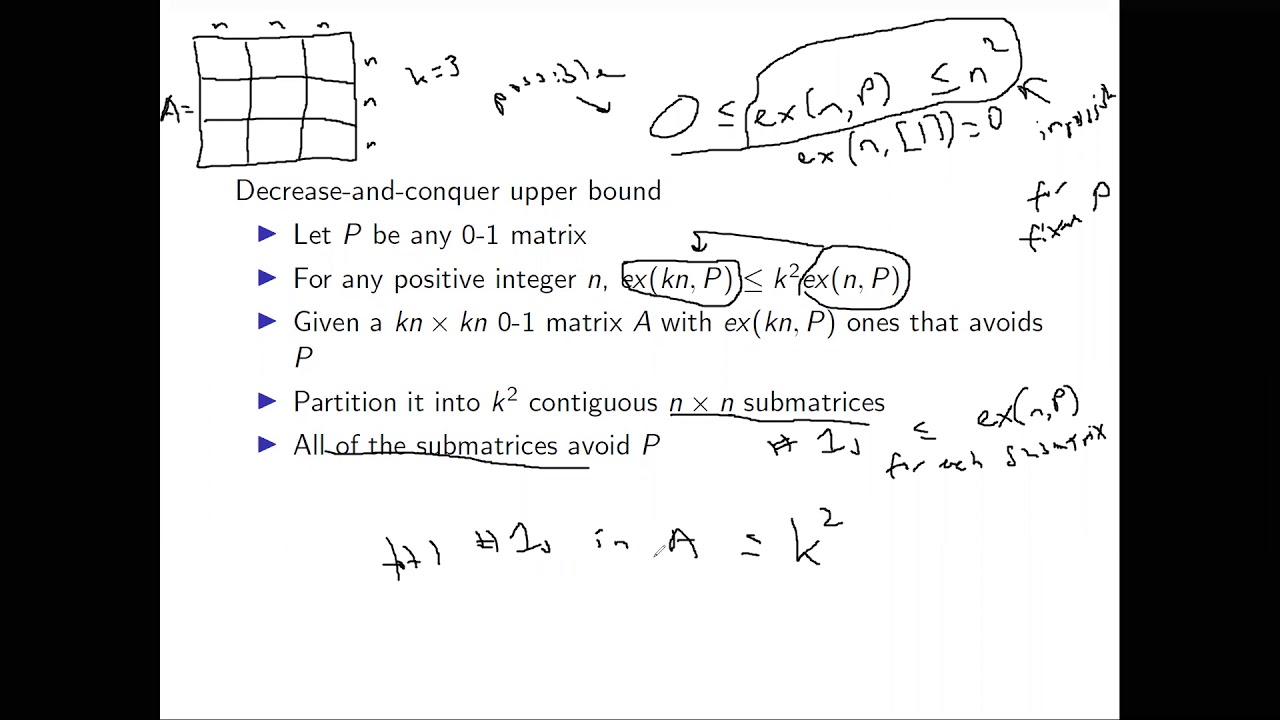 n n n
n
n
n
A=
k=3
possible
0 ≤ ex(n, P) ≤ n²
ex(n, [1]) = 0
impossible
for P
fixed
Decrease-and-conquer upper bound
▶ Let P be any 0-1 matrix
▶ For any positive integer n, ex(kn, P) ≤ k²ex(n, P)
▶ Given a kn × kn 0-1 matrix A with ex(kn, P) ones that avoids
P
▶ Partition it into k² contiguous n × n submatrices
▶ All of the submatrices avoid P
# 1s ≤ ex(n, P)
for each submatrix
# 1s in A ≤ k²